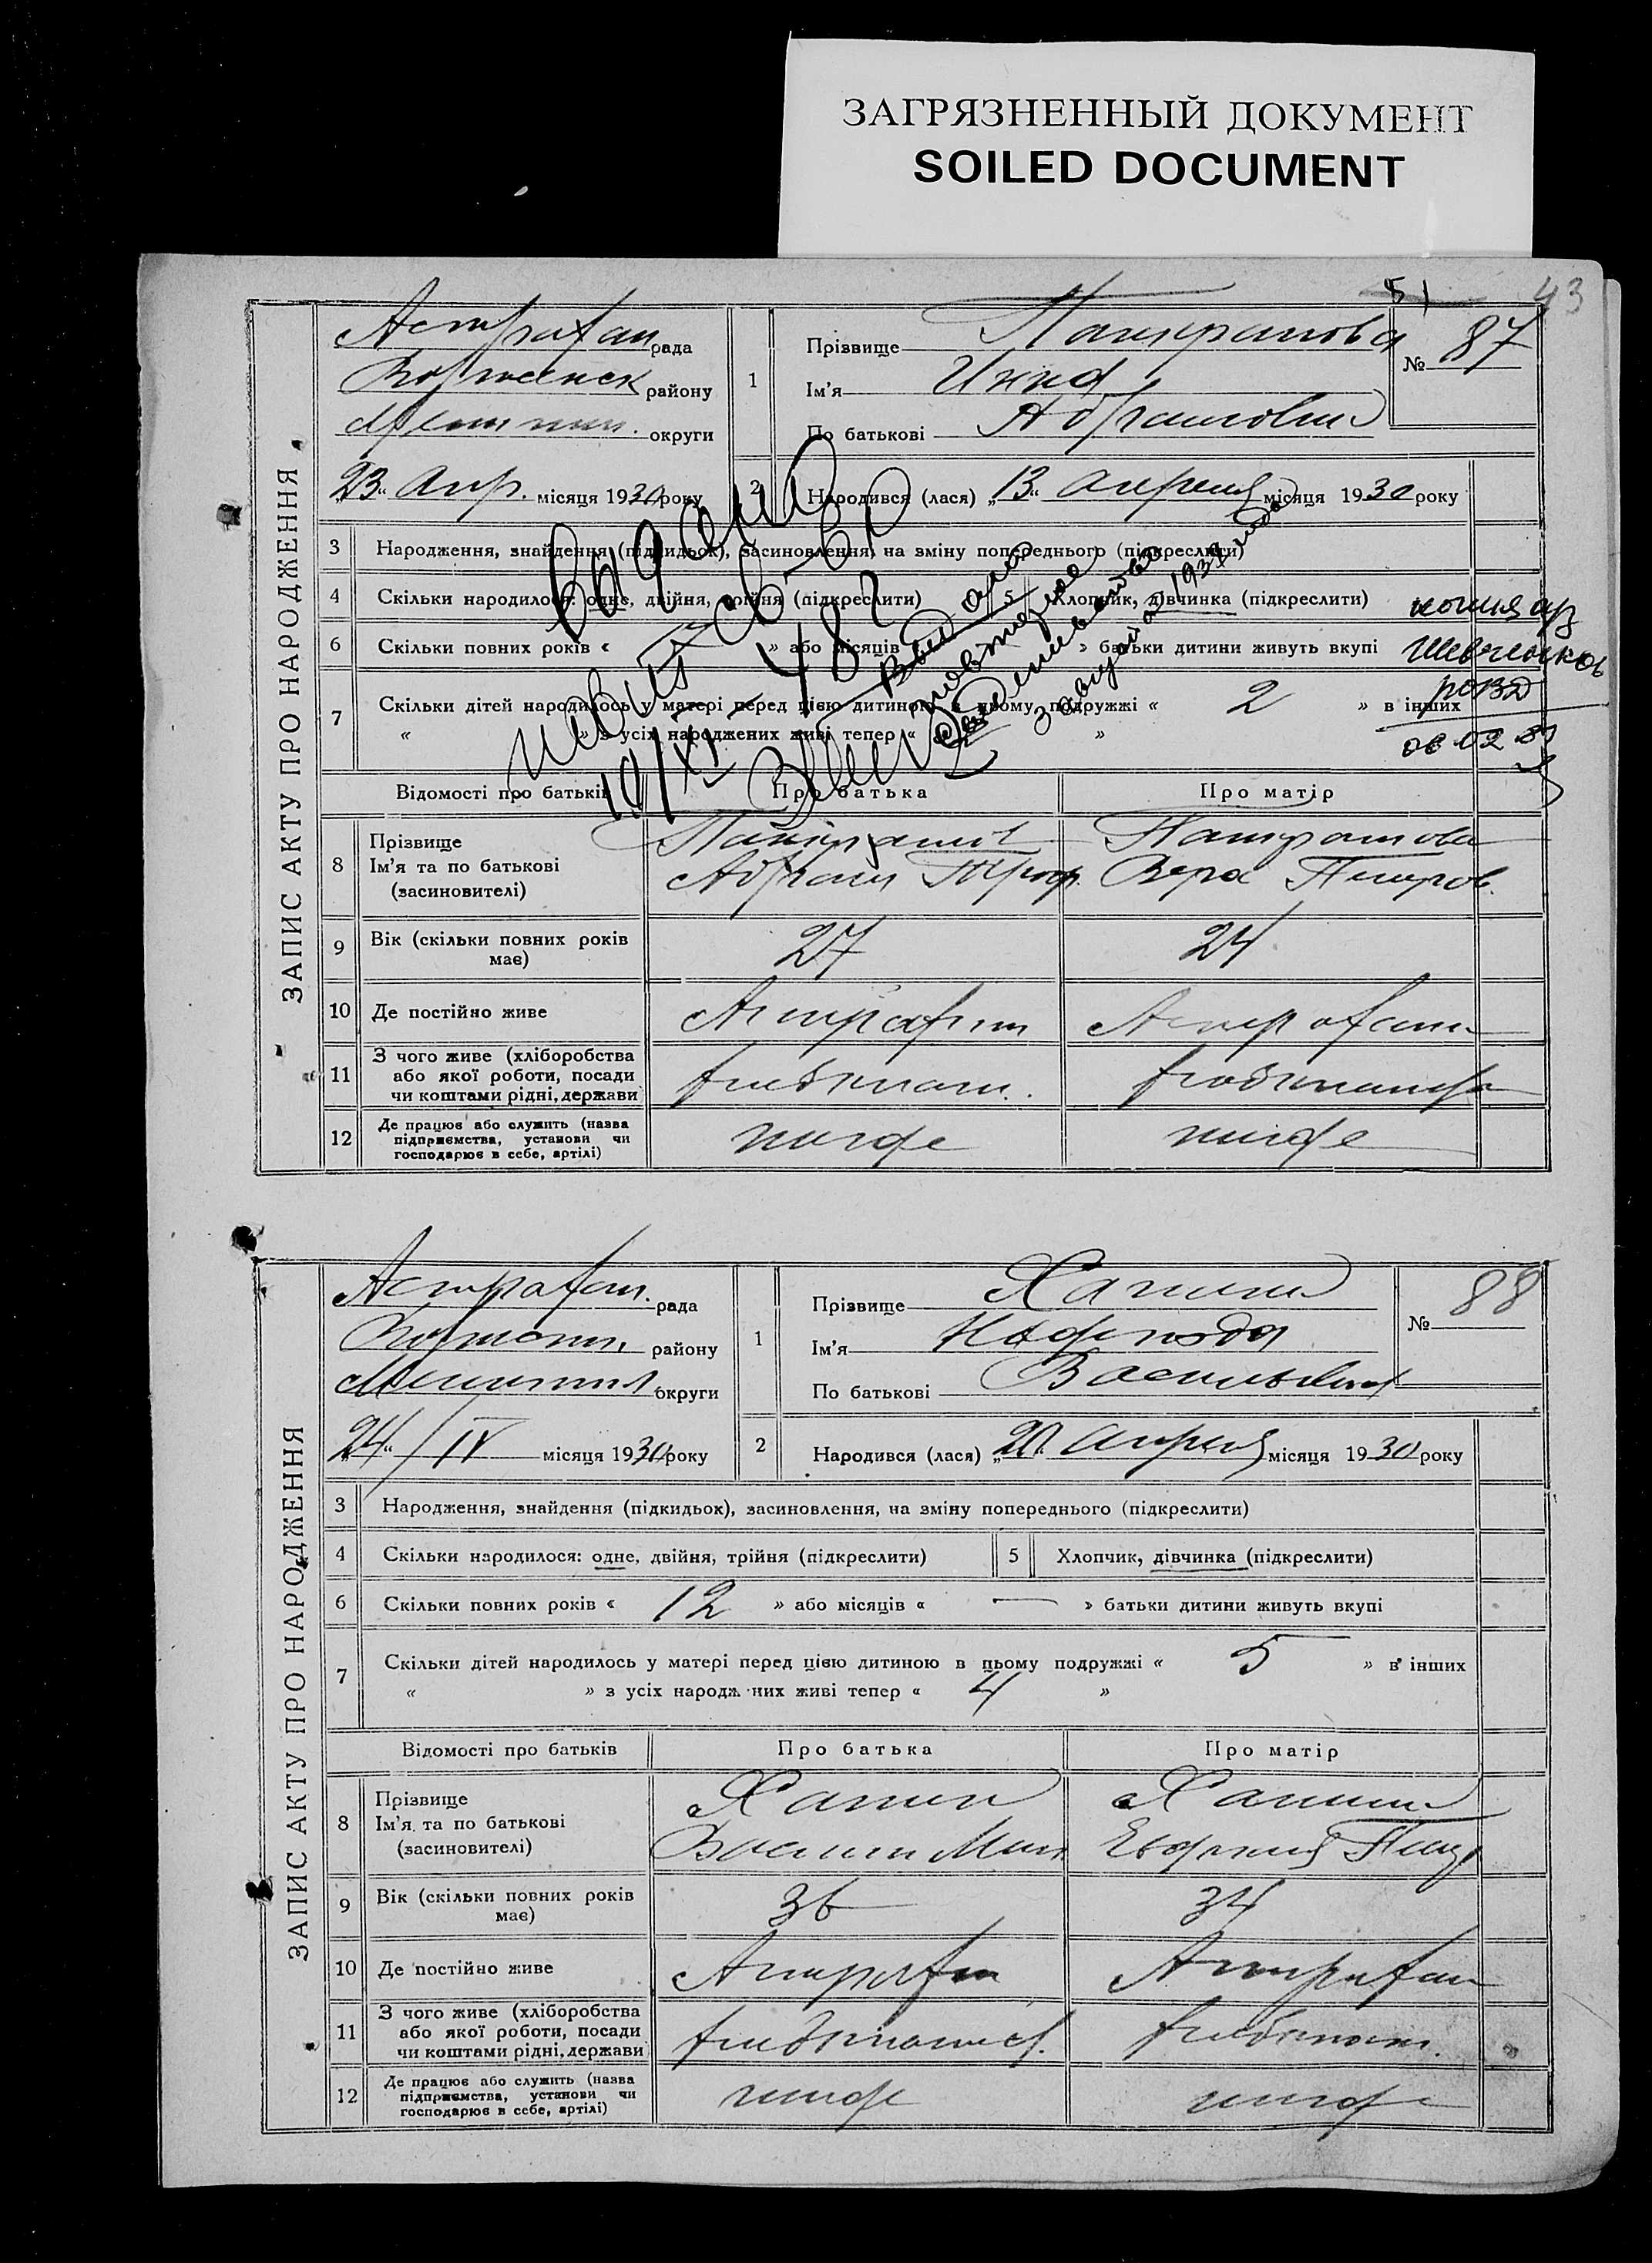 ЗАГРЯЗНЕННЫЙ ДОКУМЕНТ
SOILED DOCUMENT
51 43
ЗАПИС АКТУ ПРО НАРОДЖЕННЯ
Астрахан рада
району
округи
„23“ Апр. місяця 1930 року
1
Прізвище Панкратова
Ім’я Инна
По батькові Абрамовна
№ 87
2 Народився (лася) „13“ апреля місяця 1930 року
3 Народження, знайдення (підкидьок), засиновлення, на зміну попереднього (підкреслити)
4 Скільки народилося: одне, двійня, трійня (підкреслити) 5 Хлопчик, дівчинка (підкреслити)
6 Скільки повних років « » або місяців « » батьки дитини живуть вкупі
7 Скільки дітей народилось у матері перед цією дитиною в цьому подружжі « 2 » в інших
« » з усіх народжених живі тепер « »
выдано
повторное
3 августа 1937
копия
Шевченков
РОВД
08.02.89
Відомості про батьків Про батька Про матір
8 Прізвище
Ім’я та по батькові
(засиновителі)
Панкратов Панкратова
Абрам Троф. Вера Петров.
9 Вік (скільки повних років
має)
27 24
10 Де постійно живе Астрахан Астрахан
11 З чого живе (хліборобства
або якої роботи, посади
чи коштами рідні, держави
12 Де працює або служить (назва
підприємства, установи чи
господарює в себе, артілі)
нигде нигде
ЗАПИС АКТУ ПРО НАРОДЖЕННЯ
Астрахан. рада
району
округи
„24“/IV місяця 1930 року
1
Прізвище Ханина
Ім’я Надежда
По батькові Васильевна
№ 88
2 Народився (лася) „20 апреля місяця 1930 року
3 Народження, знайдення (підкидьох), засиновлення, на зміну попереднього (підкреслити)
4 Скільки народилося: одне, двійня, трійня (підкреслити) 5 Хлопчик, дівчинка (підкреслити)
6 Скільки повних років « 12 » або місяців « — » батьки дитини живуть вкупі
7 Скільки дітей народилось у матері перед цією дитиною в цьому подружжі « 5 » в інших
« » з усіх народж них живі тепер « 4 »
Відомості про батьків Про батька Про матір
8 Прізвище
Ім’я та по батькові
(засиновителі)
Ханин Ханина
9 Вік (скільки повних років
має)
36 34
10 Де постійно живе Астрахан Астрахан
11 З чого живе (хліборобства
або якої роботи, посади
чи коштами рідні, держави
12 Де працює або служить (назва
підприємства, установи чи
господарює в себе, артілі)
нигде нигде